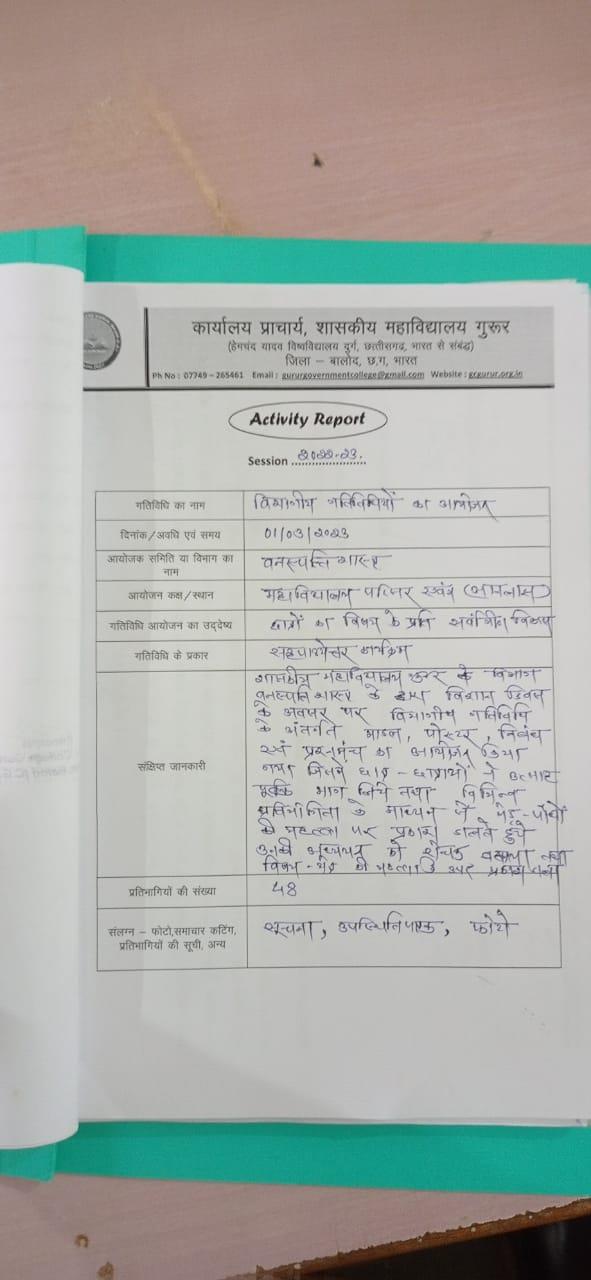 कार्यालय प्राचार्य, शासकीय महाविद्यालय गुरूर
(हेमचंद यादव विश्वविद्यालय दूर्ग, छत्तीसगढ़, भारत से संबंद्ध)
जिला – बालोद, छ.ग, भारत
Ph No : 07749 – 265461 Email : gururgovernmentcollege@gmail.com Website : gcgurur.org.in
Activity Report
Session 2022-23.
गतिविधि का नाम विभागीय गतिविधियों का आयोजन
दिनांक/अवधि एवं समय 01/03/2023
आयोजक समिति या विभाग का
नाम वनस्पति शास्त्र
आयोजन कक्ष/स्थान महाविद्यालय परिसर
गतिविधि आयोजन का उद्देष्य छात्रों का विषय के प्रति
गतिविधि के प्रकार कार्यक्रम
संक्षिप्त जानकारी
शासकीय महाविद्यालय गुरूर के विभाग
वनस्पति शास्त्र के द्वारा विज्ञान दिवस
के अवसर पर विभागीय गतिविधि
के अंतर्गत , पोस्टर, निबंध
एवं प्रश्नमंच का आयोजन किया
गया जिसमें छात्र-छात्राओं ने उत्साह
भाग लिये तथा विभिन्न
के माध्यम से पेड़-पौधों
की महत्ता पर प्रकाश डालते हुये
उनकी अध्ययन को रोचक तथा
प्रतिभागियों की संख्या 48
संलग्न – फोटो,समाचार कटिंग,
प्रतिभागियों की सूची, अन्य सूचना, उपस्थितिपत्रक, फोटो